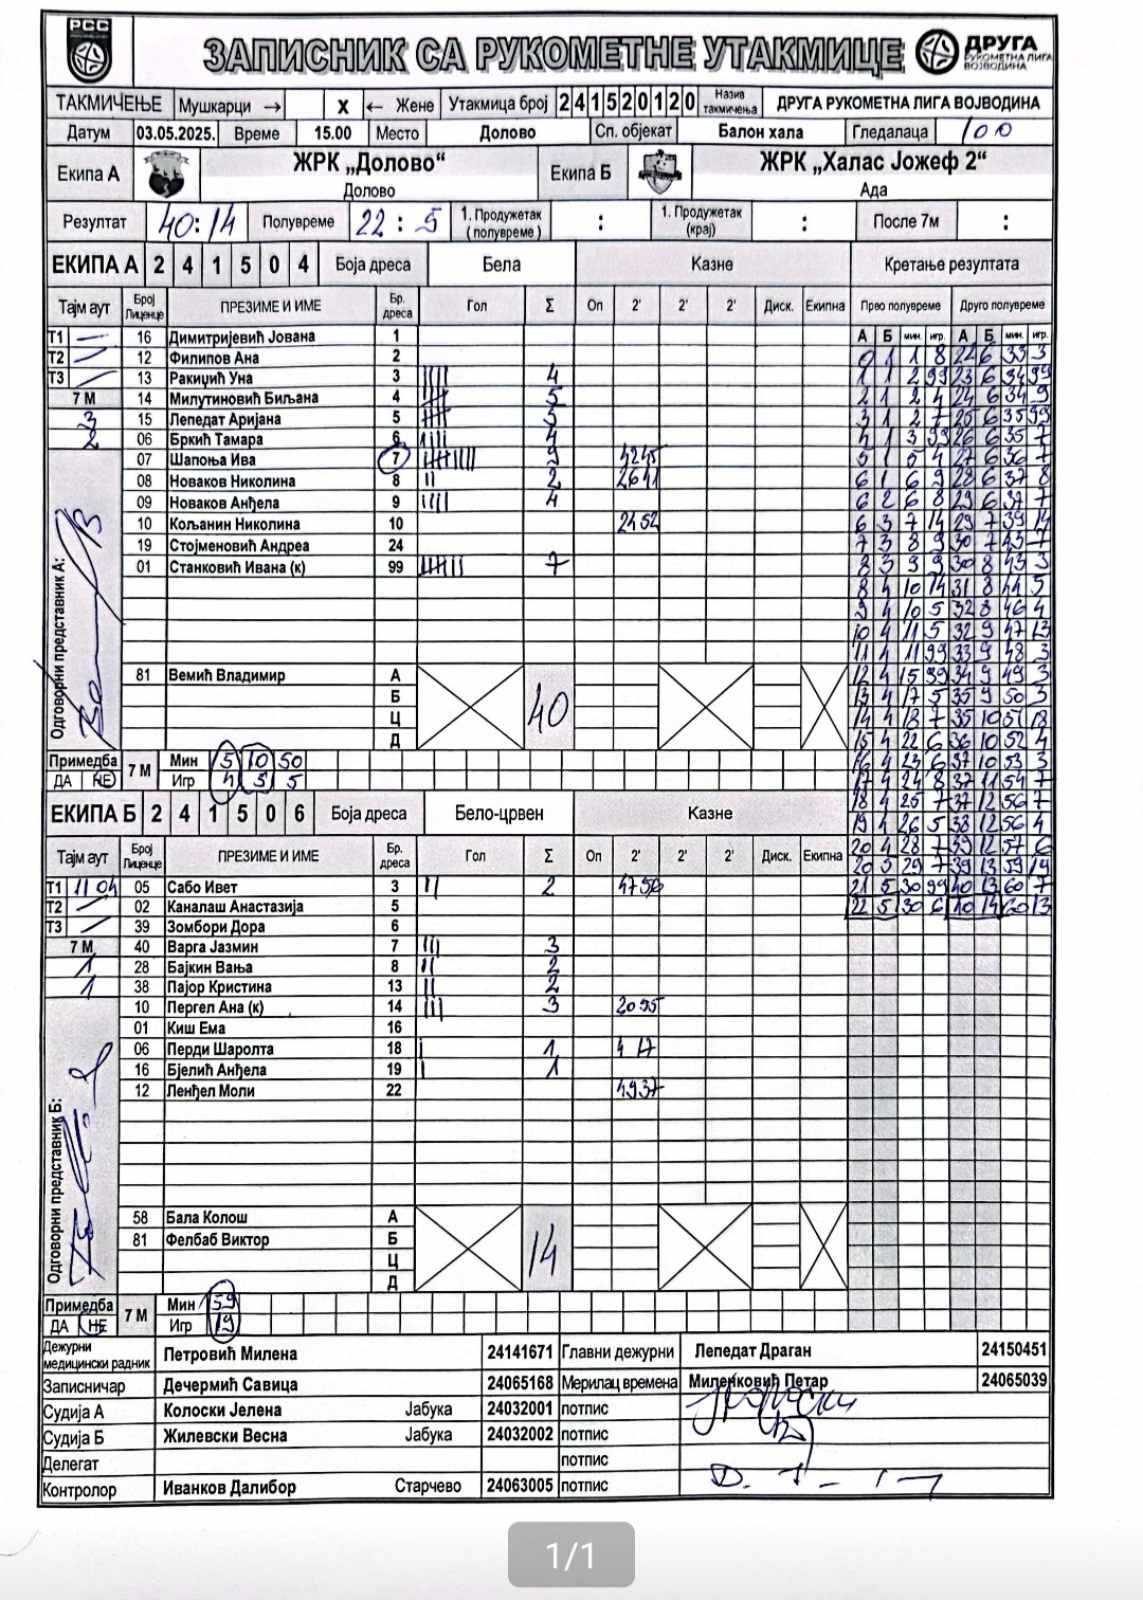 РСС
ЗАПИСНИК СА РУКОМЕТНЕ УТАКМИЦЕ
ДРУГА
РУКОМЕТНА ЛИГА
ВОЈВОДИНА
ТАКМИЧЕЊЕ Мушкарци → X ← Жене Утакмица број 2 4 1 5 2 0 1 2 0 Назив такмичења ДРУГА РУКОМЕТНА ЛИГА ВОЈВОДИНА
Датум 03.05.2025. Време 15.00 Место Долово Сп. објекат Балон хала Гледалаца 100
Екипа А ЖРК „Долово“ Долово Екипа Б ЖРК „Халас Јожеф 2“ Ада
Резултат 40:14 Полувреме 22:5 1. Продужетак (полувреме) : 1. Продужетак (крај) : После 7м :
ЕКИПА А 2 4 1 5 0 4 Боја дреса Бела Казне Кретање резултата
Тајм аут Број Лиценце ПРЕЗИМЕ И ИМЕ Бр. дреса Гол Σ Оп 2' 2' 2' Диск. Екипна Прво полувреме Друго полувреме
А Б мин. игр. А Б мин. игр.
Т1 16 Димитријевић Јована 1
Т2 12 Филипов Ана 2
Т3 13 Ракиџић Уна 3 4
7 М 14 Милутиновић Биљана 4 5
3 15 Лепедат Аријана 5 5
2 06 Бркић Тамара 6 4
07 Шапоња Ива 7 9 4245
08 Новаков Николина 8 2 2641
09 Новаков Анђела 9 4
10 Кољанин Николина 10 2452
19 Стојменовић Андреа 24
01 Станковић Ивана (к) 99 7
Одговорни представник А:
81 Вемић Владимир А
Б
Ц
Д
40
Примедба ДА НЕ 7 М Мин 5 10 50
Игр 4 5 5
0 1 1 8 22 6 33 3
1 1 2 99 23 6 34 99
2 1 2 4 24 6 34 9
3 1 2 7 25 6 35 99
4 1 3 99 26 6 35 7
5 1 5 4 27 6 36 7
6 1 6 9 28 6 37 8
6 2 6 8 29 6 37 7
6 3 7 14 29 7 39 14
7 3 8 9 30 7 43 7
8 3 9 9 30 8 43 3
8 4 10 14 31 8 44 5
9 4 10 5 32 8 46 4
10 4 11 5 32 9 47 13
11 4 11 99 33 9 48 3
12 4 15 99 34 9 49 3
13 4 17 5 35 9 50 3
14 4 18 7 35 10 51 18
15 4 22 6 36 10 52 4
16 4 23 6 37 10 53 3
17 4 24 8 37 11 54 7
18 4 25 7 37 12 56 7
19 4 26 5 38 12 56 4
20 4 28 7 39 12 57 6
20 5 29 7 39 13 59 19
21 5 30 99 40 13 60 7
22 5 30 6 40 14 60 13
ЕКИПА Б 2 4 1 5 0 6 Боја дреса Бело-црвен Казне
Тајм аут Број Лиценце ПРЕЗИМЕ И ИМЕ Бр. дреса Гол Σ Оп 2' 2' 2' Диск. Екипна
Т1 11 04 05 Сабо Ивет 3 2 4750
Т2 02 Каналаш Анастазија 5
Т3 39 Зомбори Дора 6
7 М 40 Варга Јазмин 7 3
1 28 Бајкин Вања 8 2
1 38 Пајор Кристина 13 2
10 Пергел Ана (к) 14 3
01 Киш Ема 16
06 Перди Шаролта 18 1 4 17
16 Бјелић Анђела 19 1
12 Ленђел Моли 22 4937
Одговорни представник Б:
58 Бала Колош А
81 Фелбаб Виктор Б
Ц
Д
14
Примедба ДА НЕ 7 М Мин 59
Игр 19
Дежурни медицински радник Петровић Милена 24141671 Главни дежурни Лепедат Драган 24150451
Записничар Дечермић Савица 24065168 Мерилац времена Миленковић Петар 24065039
Судија А Колоски Јелена Јабука 24032001 потпис
Судија Б Жилевски Весна Јабука 24032002 потпис
Делегат потпис
Контролор Иванков Далибор Старчево 24063005 потпис
1/1